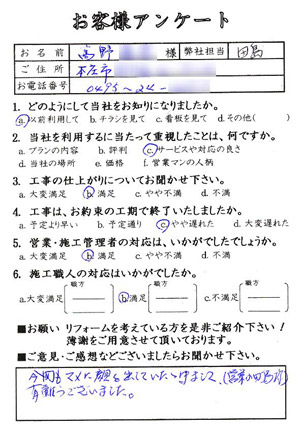 お客様アンケート
お名前 高野 様 弊社担当 田島
ご住所 本庄市
お電話番号 0495-24-
1. どのようにして当社をお知りになりましたか。
a.以前利用して b.チラシを見て c.看板を見て d.その他( )
2. 当社を利用するに当たって重視したことは、何ですか。
a.プランの内容 b.評判 c.サービスや対応の良さ
d.当社の場所 e.価格 f.営業マンの人柄
3. 工事の仕上がりについてお聞かせ下さい。
a.大変満足 b.満足 c.やや不満 d.不満
4. 工事は、お約束の工期で終了いたしましたか。
a.予定より早い b.予定通り c.やや遅れた d.大変遅れた
5. 営業・施工管理者の対応は、いかがでしたでしょうか。
a.大変満足 b.満足 c.やや不満 d.不満
6. 施工職人の対応はいかがでしたか。
a.大変満足 [職方 ] b.満足 [職方 ] c.不満 [職方 ]
■お願い リフォームを考えている方を是非ご紹介下さい!
薄謝をご用意させて頂いております。
■ご意見・ご感想などございましたらお聞かせ下さい。
今回もマメに顔を出していただけまして、(営業の田島所)
有難うございました。